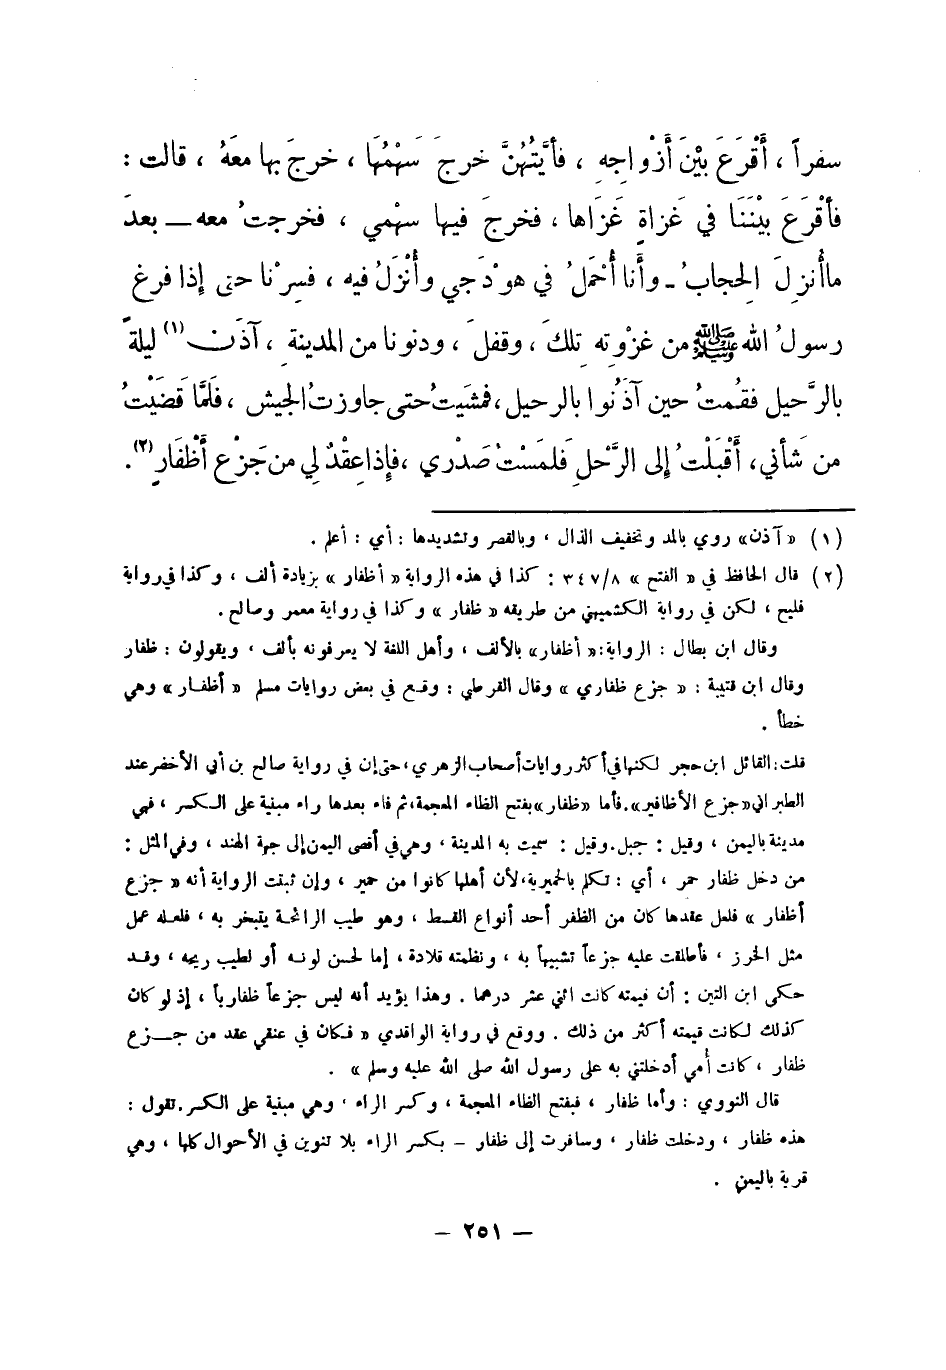 سفراً ، أَقْرَعَ بيْنَ أَزْواجِهِ ، فأَيَّتُهُنَّ خرجَ سَهْمُهَا ، خرجَ بها معَهُ ، قالت :
فأَقْرَعَ بيْنَنَا في غَزاةٍ غَزَاها ، فخرجَ فيها سهْمي ، فخرجتُ معه ــ بعدَ
ماأُنزِلَ الحِجابُ ــ وأَنا أُحْمَلُ في هوْدَجي وأُنْزَلُ فيه ، فسِرْنا حتى إِذا فرغ
رسولُ الله ﷺ من غزْوتِهِ تلكَ ، وقفلَ ، ودنونا من المدينةِ ، آذَنَ (١) ليلةً
بالرَّحيل فقُمتُ حين آذَنُوا بالرحيل ، فمشَيتُ حتى جاوزتُ الجيش ، فلَمَّا قضَيْتُ
من شَأني ، أَقْبَلْتُ إِلى الرَّحْلِ فلمَسْتُ صَدْري ، فإِذا عِقْدٌ لي من جَزْعِ أَظْفَارٍ (٢) .
(١) « آذن » روي بالمد وتخفيف الذال ، وبالقصر وتشديدها : أي : أعلم .
(٢) قال الحافظ في « الفتح » ٣٤٧/٨ : كذا في هذه الرواية « أظفار » بزيادة ألف ، وكذا في رواية
فليح ، لكن في رواية الكشميهني من طريقه « ظفار » وكذا في رواية معمر وصالح .
وقال ابن بطال : الرواية : « أظفار » بالألف ، وأهل اللغة لا يعرفونه بألف ، ويقولون : ظفار
وقال ابن قتيبة : « جزع ظفاري » وقال القرطبي : وقع في بعض روايات مسلم « أظفار » وهي
خطأ .
قلت : القائل ابن حجر لكنها في أكثر روايات أصحاب الزهري ، حتى إن في رواية صالح بن أبي الأخضر عند
الطبراني « جزع الأظافير » . فأما « ظفار » بفتح الظاء المعجمة ، ثم فاء بعدها راء مبنية على الكسر ، فهي
مدينة باليمن ، وقيل : جبل . وقيل : سميت به المدينة ، وهي في أقصى اليمن إلى جهة الهند ، وفي المثل :
من دخل ظفار حمر ، أي : تكلم بالحميرية ، لأن أهلها كانوا من حمير ، وإن ثبتت الرواية أنه « جزع
أظفار » فلعل عقدها كان من الظفر أحد أنواع القسط ، وهو طيب الرائحة يتبخر به ، فلعله عمل
مثل الخرز ، فأطلقت عليه جزعاً تشبيهاً به ، ونظمته قلادة ، إما لحسن لونه أو لطيب ريحه ، وقد
حكى ابن التين : أن قيمته كانت اثني عشر درهما . وهذا يؤيد أنه ليس جزعاً ظفارياً ، إذ لو كان
كذلك لكانت قيمته أكثر من ذلك . ووقع في رواية الواقدي « فكان في عنقي عقد من جــزع
ظفار ، كانت أُمي أدخلتني به على رسول الله صلى الله عليه وسلم » .
قال النووي : وأما ظفار ، فبفتح الظاء المعجمة ، وكسر الراء ، وهي مبنية على الكسر . تقول :
هذه ظفار ، ودخلت ظفار ، وسافرت إلى ظفار – بكسر الراء بلا تنوين في الأحوال كلها ، وهي
قرية باليمن .
– ٢٥١ –